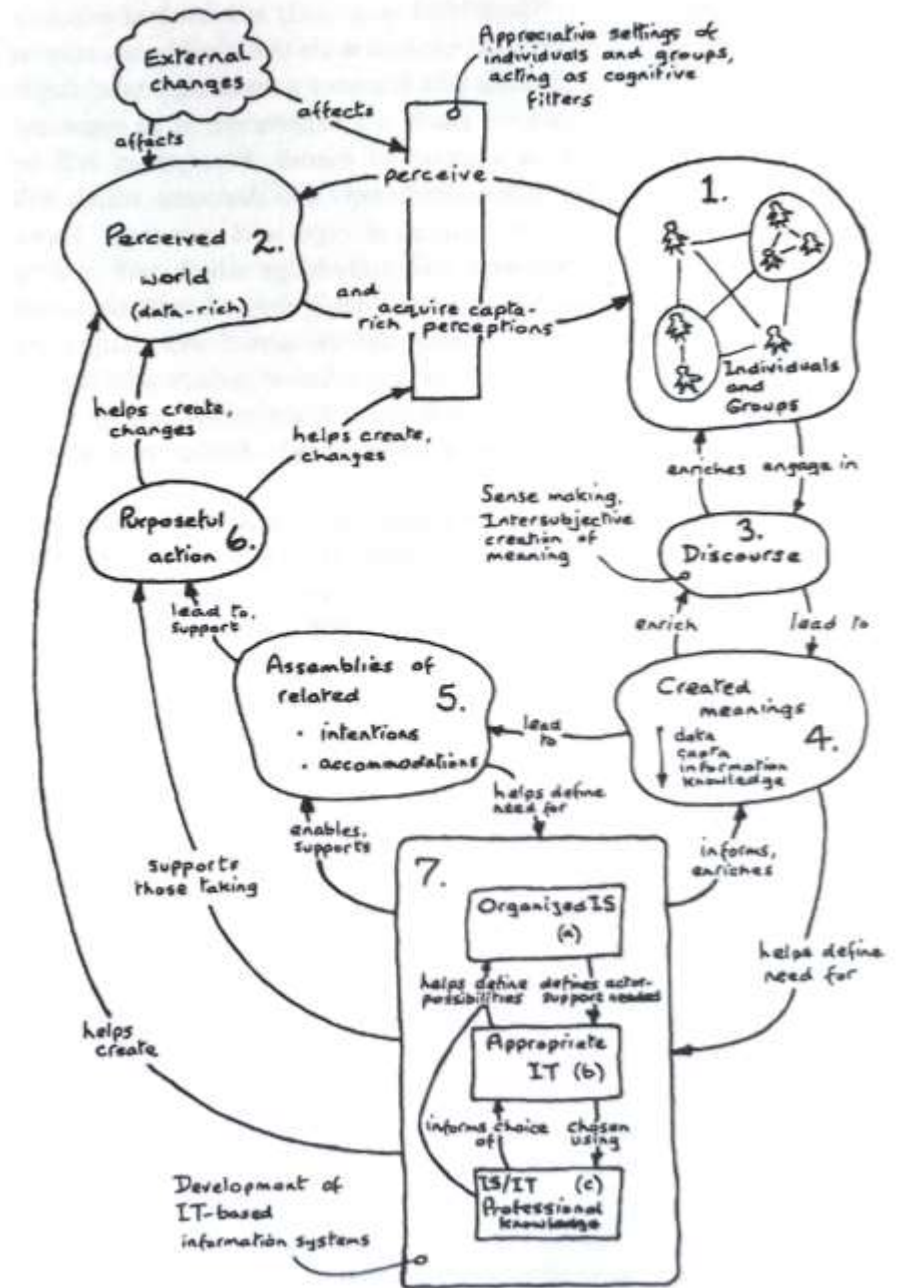 External
changes
Appreciative settings of
individuals and groups,
acting as cognitive
filters
affects
affects
perceive
1.
Perceived 2.
world
(data-rich)
and
acquire capta-
rich perceptions
Individuals
and
Groups
helps create,
changes
helps create,
changes
enriches engage in
Sense making,
Intersubjective
creation of
meaning
3.
Discourse
Purposeful
action 6.
lead to,
support
enrich
lead to
Assemblies of
related 5.
· intentions
· accommodations
lead
to
Created
meanings
4.
data
capta
information
knowledge
helps define
need for
enables,
supports
informs,
enriches
supports
those taking
7.
Organized IS
(a)
helps define defines actor-
possibilities support needed
helps define
need for
Appropriate
IT (b)
helps
create
informs choice
of
chosen
using
IS/IT (c)
Professional
knowledge
Development of
IT-based
information systems